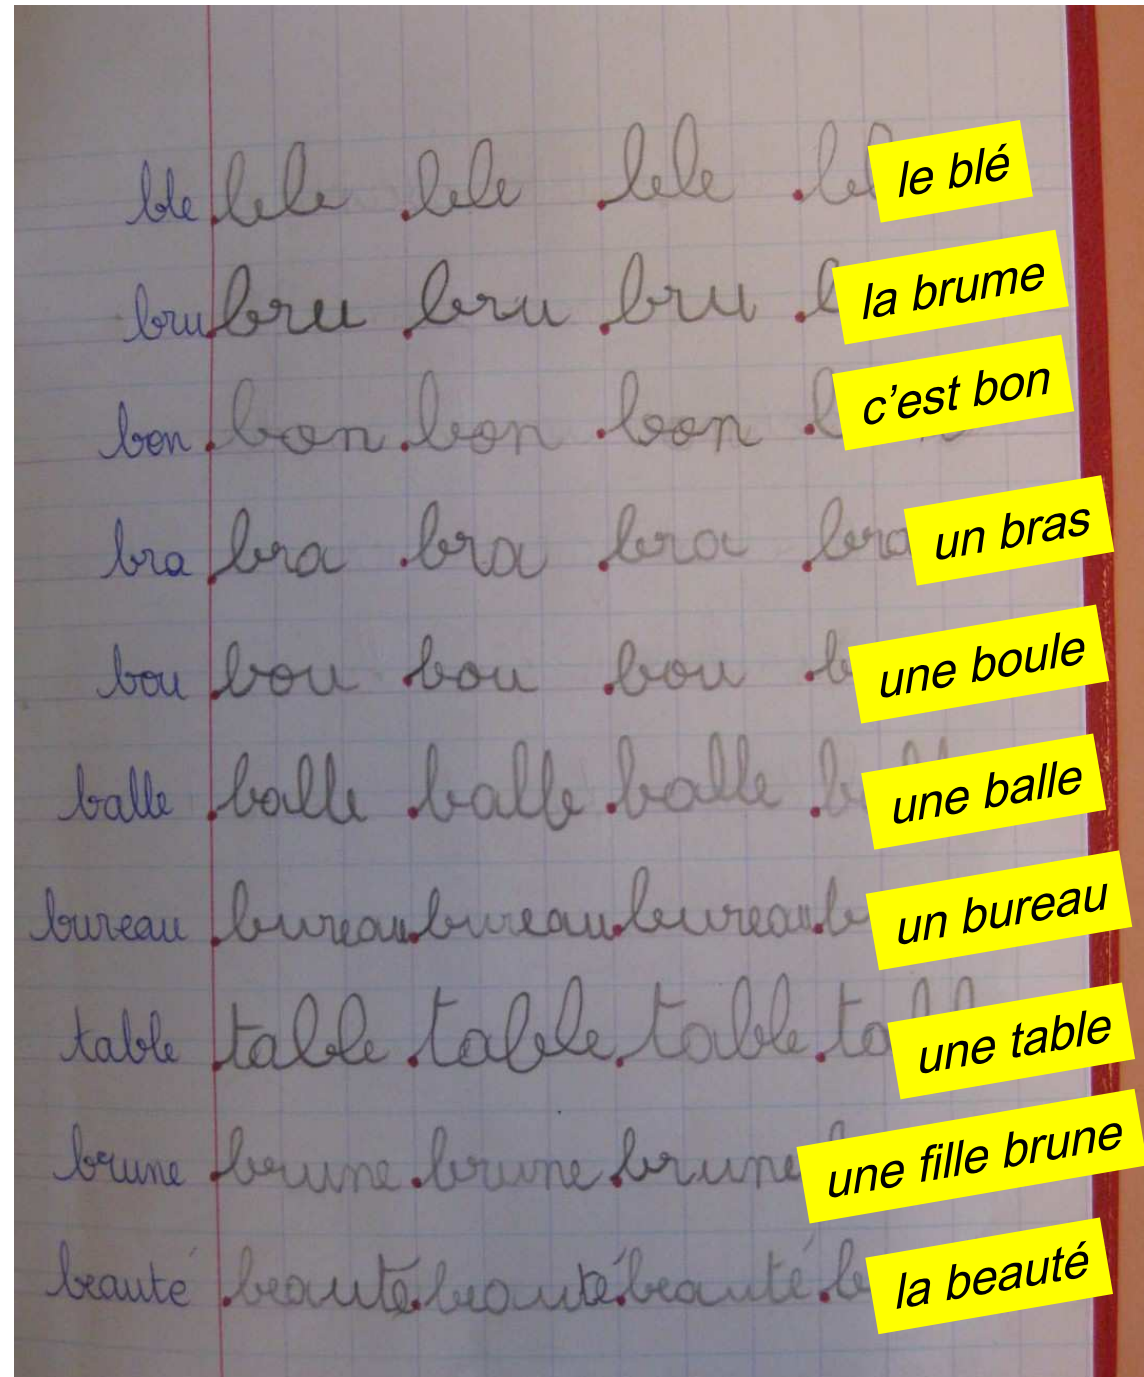 ble ble ble ble le blé
bru bru bru bru la brume
bon bon bon c'est bon
bra bra bra bra bra un bras
bou bou bou bou une boule
balle balle balle balle une balle
bureau bureau bureau bureau un bureau
table table table table une table
brune brune brune brune une fille brune
beauté beauté beauté beauté la beauté